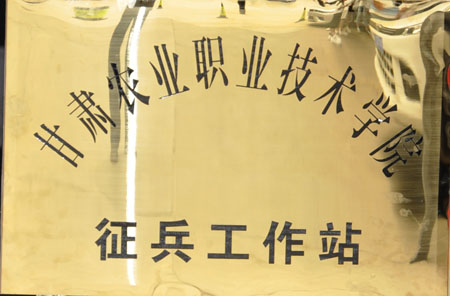 甘肃农业职业技术学院
征兵工作站